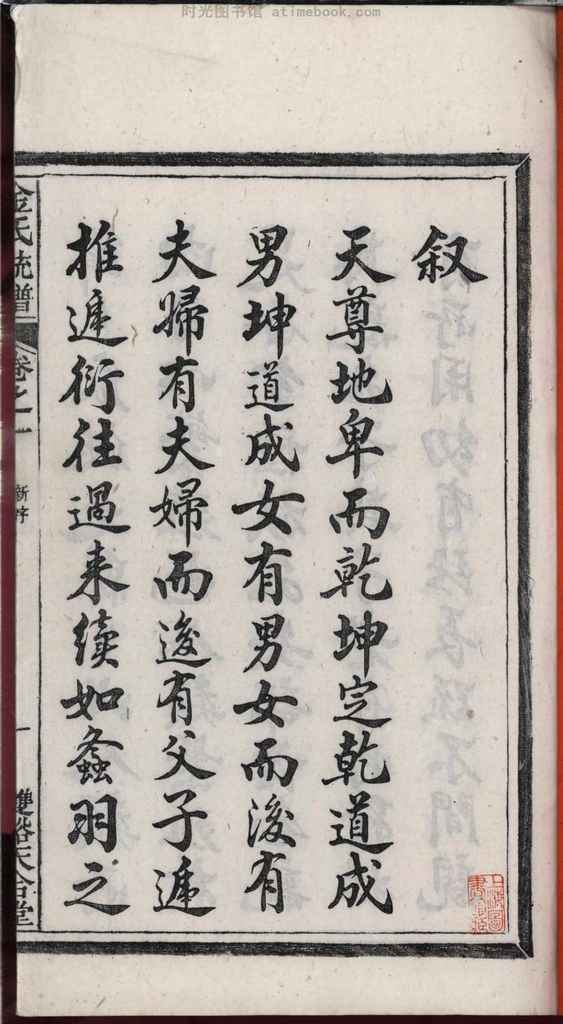 时光图书馆 atimebook.com
叙
天尊地卑而乾坤定乾道成
男坤道成女有男女而后有
夫婦有夫婦而逡有父子遞
推遞衍往過来續如螽羽之
金氏统譜
卷之一
新序
一
雙谿天合堂